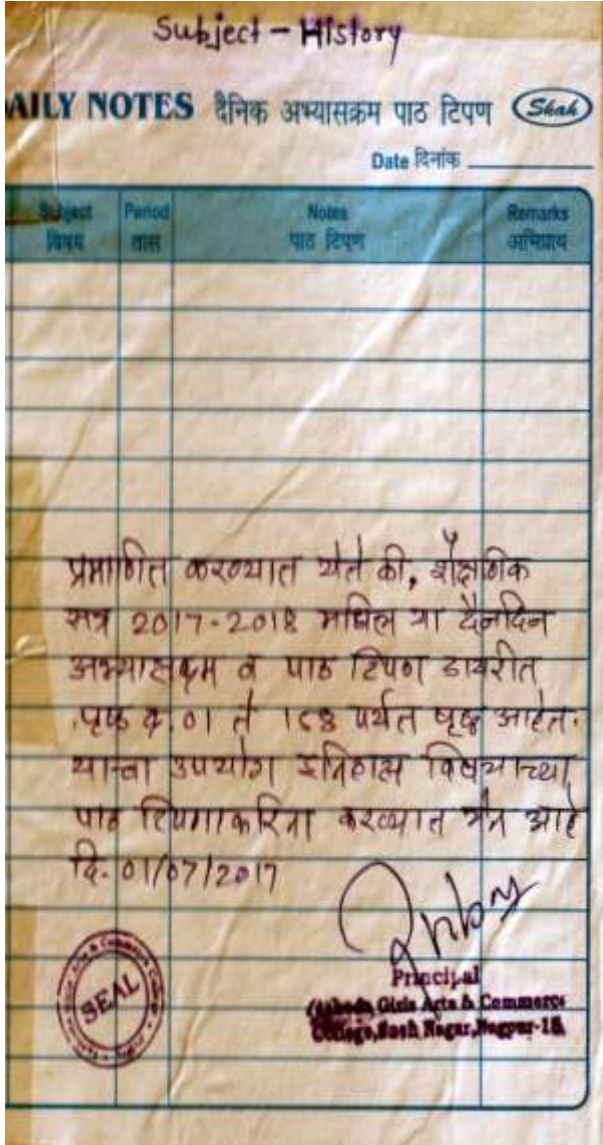 Subject - History
AILY NOTES दैनिक अभ्यासक्रम पाठ टिपण Shah
Date दिनांक
Subject Period Notes Remarks
विषय तास पाठ टिपण अभिप्राय
प्रमाणित करण्यात येते की, शैक्षणिक
सत्र 2017-2018 मधिल या दैनंदिन
अभ्यासक्रम व पाठ टिपण डायरीत
पृष्ठ क्र.01 ते 168 पर्यंत पृष्ठ आहेत.
याचा उपयोग इतिहास विषयाच्या
पाठ टिपणाकरिता करण्यात येत आहे
दि. 01/07/2017
SEAL
Principal
Girls Arts & Commerce
College, Nagar, Nagpur-15